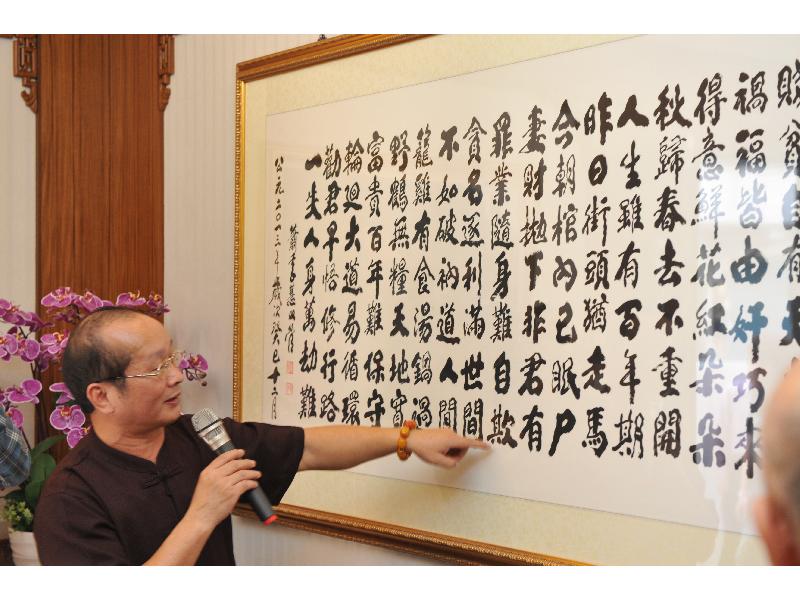 貧自有天
禍福皆由奸巧來
得意鮮花紅朵朵
秋歸春去不重開
人生雖有百年期
昨日街頭猶走馬
今朝棺內已眠尸
妻財拋下非君有
罪業隨身難自欺
貪名逐利滿世間
不如破衲道人閒
籠雞有食湯鍋禍
野鶴無糧天地寬
富貴百年難保守
輪迴大道易循環
勸君早悟修行路
一失人身萬劫難
公元二〇一三年歲次癸巳十二月